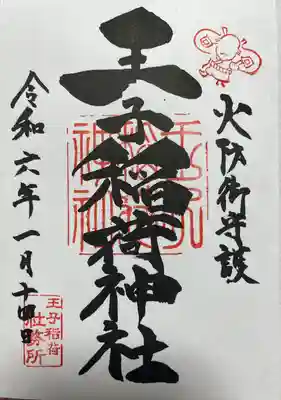 火防御守護
王子稲荷神社
令和六年一月十四日
王子稲荷
社務所